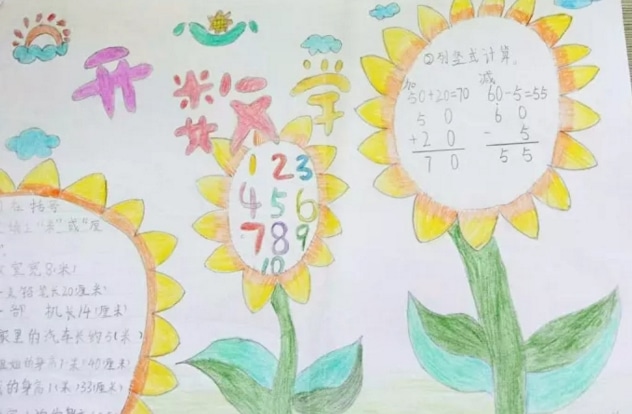 开
数学
1 2 3
4 5 6
7 8 9
10
②列竖式计算。
加 减
50+20=70 60-5=55
5 0 6 0
+2 0 - 5
7 0 5 5
室宽8(米)
长20(厘米)
一部 机长14(厘米)
家里的汽车长约5(米)
的身高1米40(厘米)
的身高1(米)33(厘米)